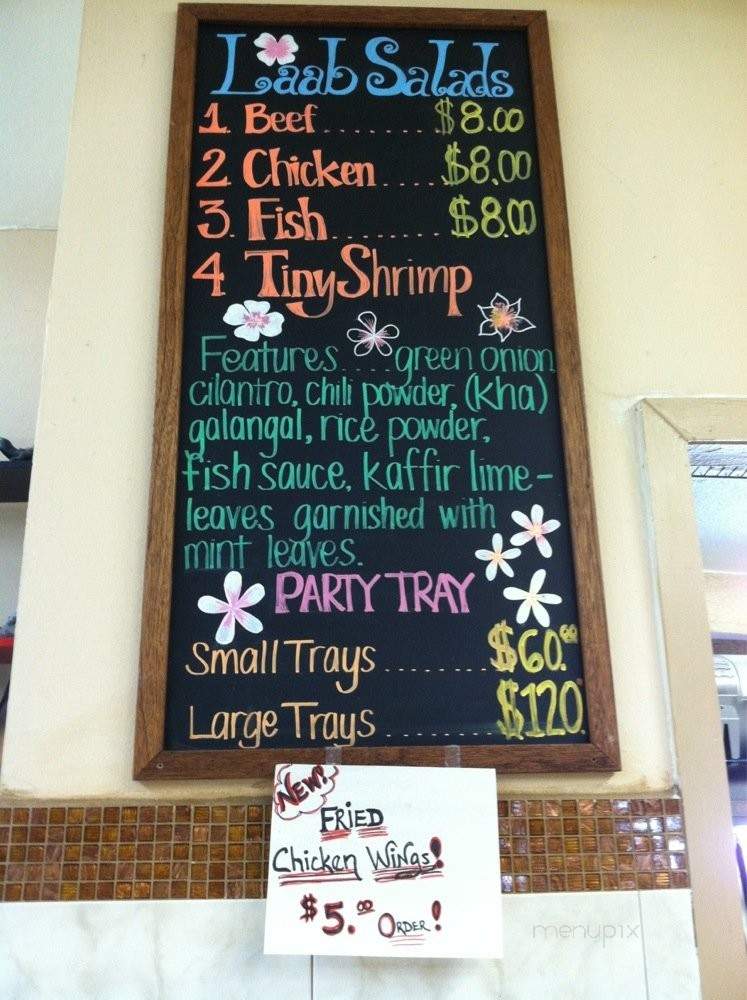 Laab Salads
1. Beef ....... $8.00
2 Chicken .... $8.00
3. Fish ........ $8.00
4 Tiny Shrimp
Features ... green onion
cilantro, chili powder, (Kha)
galangal, rice powder,
fish sauce, kaffir lime-
leaves garnished with
mint leaves.
PARTY TRAY
Small Trays ....... $60.00
Large Trays ........ $120.
NEW!
FRiED
Chicken WiNgs!
$5.00 ORDER!
menupix